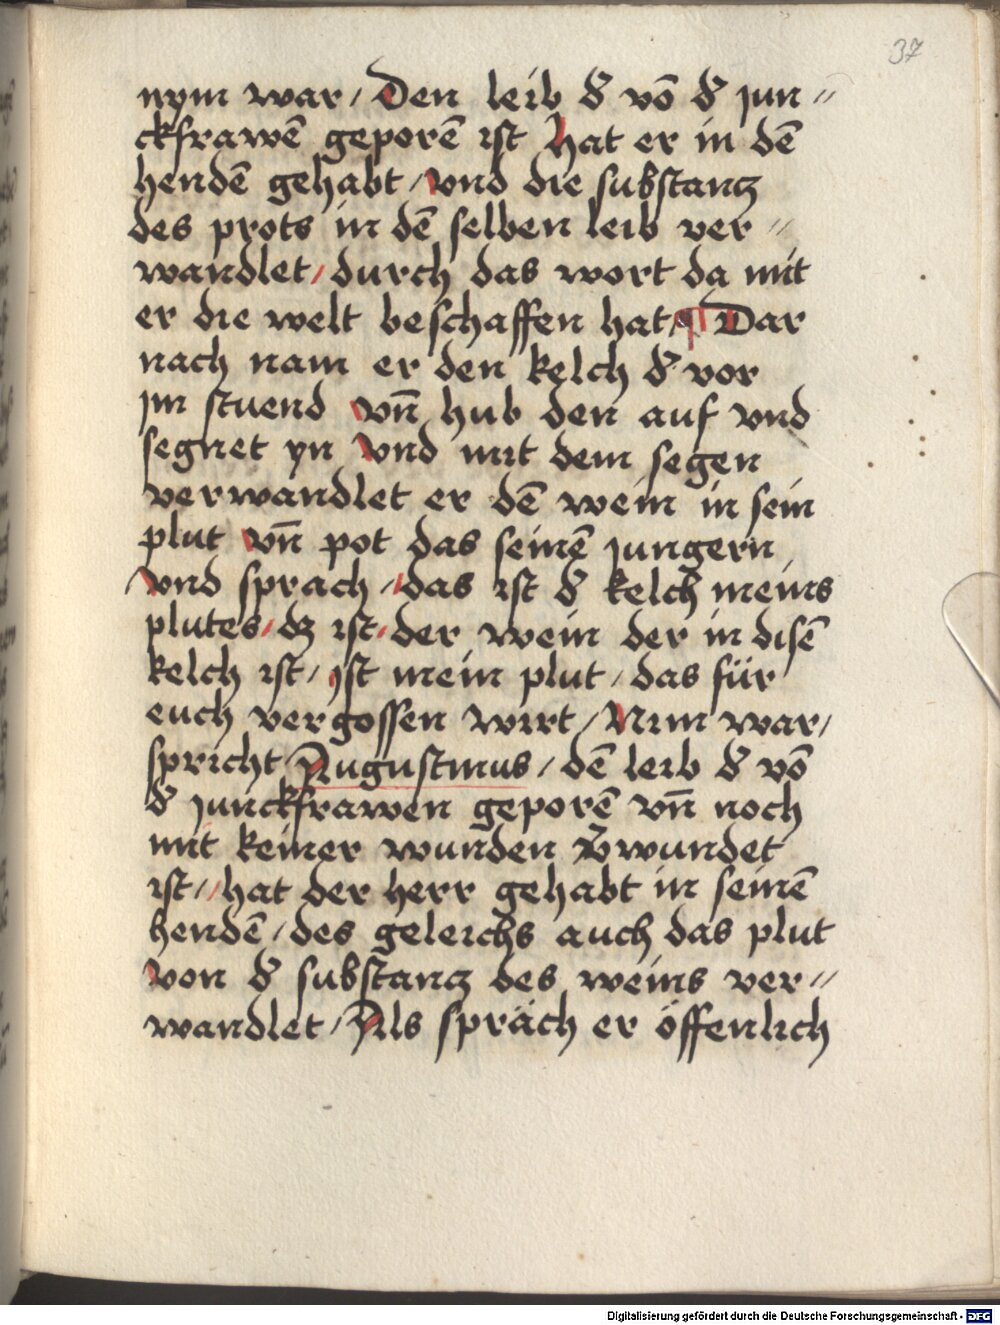 37
nym war / Den leib d̄ vō d̄ jun //
ckfrawē geporē ist hat er in dē
hendē gehabt / vnd die substancz
des prots in dē selben leib ver //
wandlet / durch das wort da mit
er die welt beschaffen hat / ¶ Dar
nach nam er den kelch d̄ vor
jm stuend vn̄ hub den auf vnd
segnet yn vnd mit dem segen
verwandlet er dē wein in sein
plut vn̄ pot das seinē jungern
vnd sprach / das ist d̄ kelch meins
plutes / dz ist / der wein der in disē
kelch ist / jst mein plut / das für
euch vergossen wirt / Nim war /
spricht Augustinus / dē leib d̄ vō
d̄ junckfrawen geporē vn̄ noch
mit keiner wunden v̄wundet
ist // hat der herr gehabt in seinē
hendē / des geleichs auch das plut
von d̄ substancz des weins ver //
wandlet / Als spräch er öffenlich
Digitalisierung gefördert durch die Deutsche Forschungsgemeinschaft - DFG